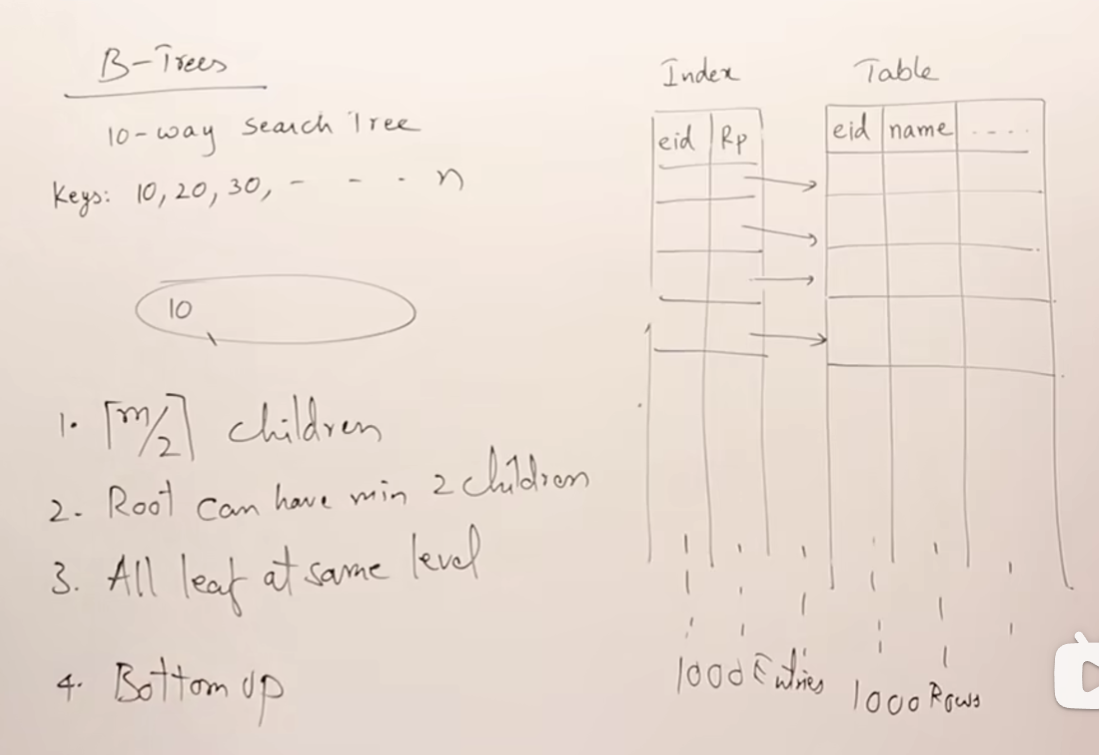 B-Trees
10-way Search Tree
Keys: 10, 20, 30, - - - n
10
1. ⌈m/2⌉ children
2. Root can have min 2 children
3. All leaf at same level
4. Bottom up
Index
eid Rp
1000 Entries
Table
eid name ....
1000 Rows